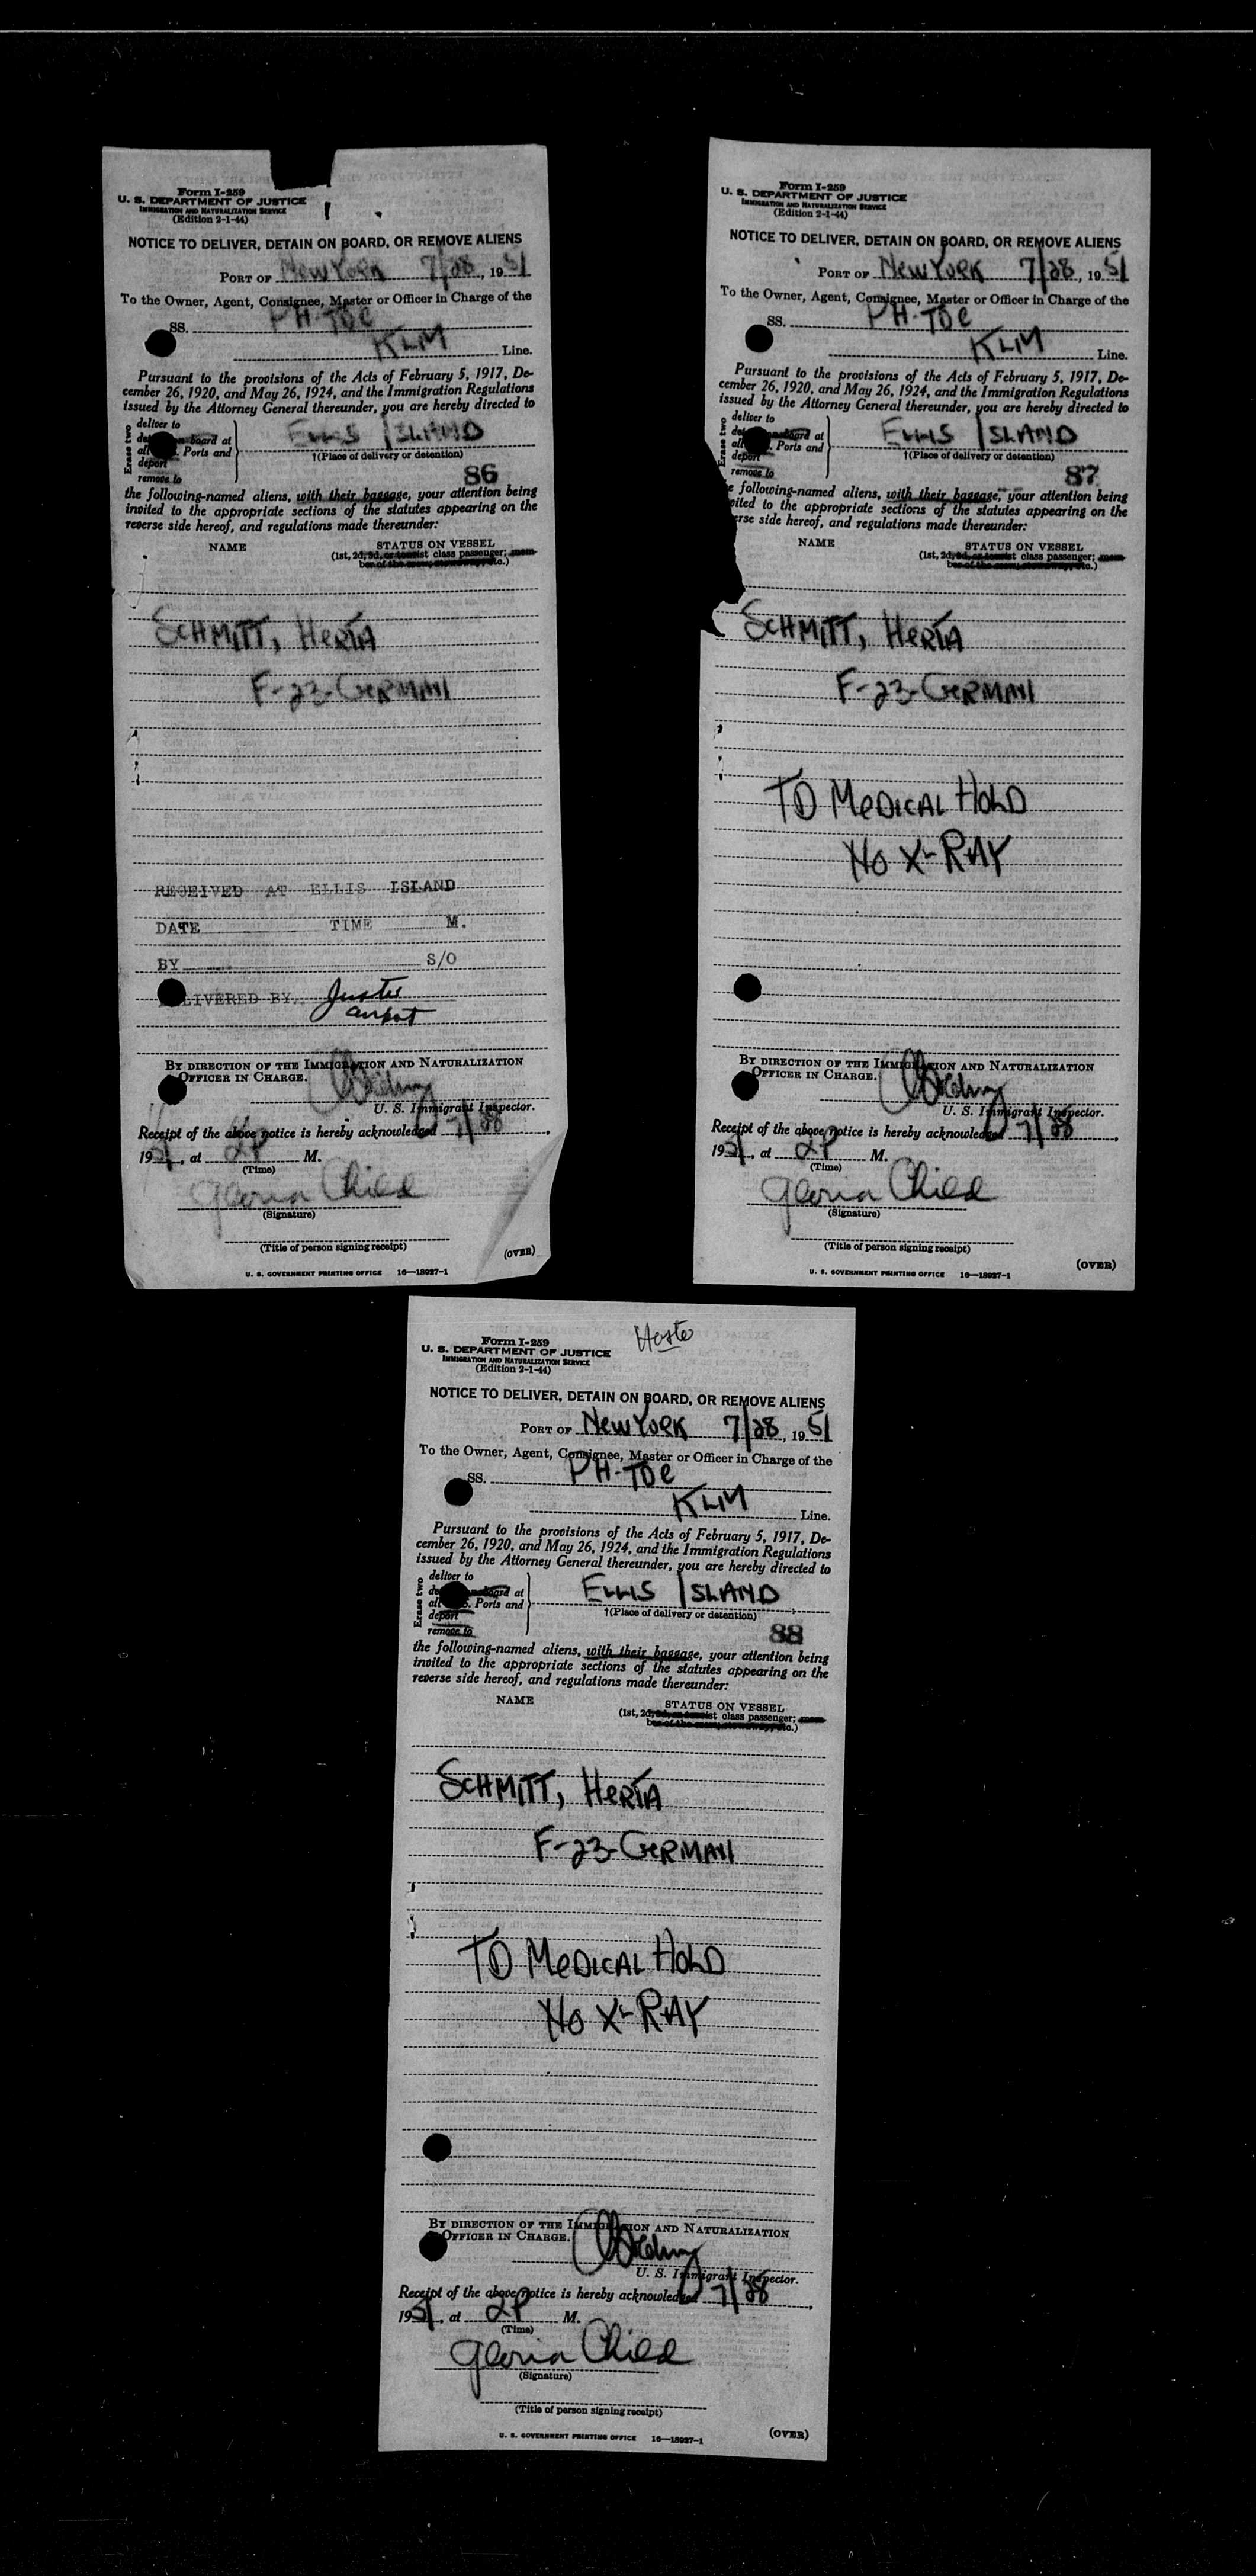 Form I-259
U. S. DEPARTMENT OF JUSTICE
IMMIGRATION AND NATURALIZATION SERVICE
(Edition 2-1-44)
NOTICE TO DELIVER, DETAIN ON BOARD, OR REMOVE ALIENS
PORT OF New York 7/28, 1951
To the Owner, Agent, Consignee, Master or Officer in Charge of the
SS. PH-TDC
KLM Line.
Pursuant to the provisions of the Acts of February 5, 1917, De-
cember 26, 1920, and May 26, 1924, and the Immigration Regulations
issued by the Attorney General thereunder, you are hereby directed to
Erase two
deliver to
board at
Ports and
deport
remove to
ELLIS ISLAND
†(Place of delivery or detention)
86
the following-named aliens, with their baggage, your attention being
invited to the appropriate sections of the statutes appearing on the
reverse side hereof, and regulations made thereunder:
NAME STATUS ON VESSEL
(1st, 2d, 3d, or tourist class passenger; mem-
ber of the crew, stowaway, etc.)
SCHMITT, HERTA
F-23-GERMAN
RECEIVED AT ELLIS ISLAND
DATE TIME M.
BY S/O
LIVERED BY
BY DIRECTION OF THE IMMIGRATION AND NATURALIZATION
OFFICER IN CHARGE.
U. S. Immigrant Inspector.
Receipt of the above notice is hereby acknowledged 7/28,
1951, at 2P M.
(Time)
Gloria Child
(Signature)
(Title of person signing receipt)
(OVER)
U. S. GOVERNMENT PRINTING OFFICE 16—18927-1
Form I-259
U. S. DEPARTMENT OF JUSTICE
IMMIGRATION AND NATURALIZATION SERVICE
(Edition 2-1-44)
NOTICE TO DELIVER, DETAIN ON BOARD, OR REMOVE ALIENS
PORT OF New York 7/28, 1951
To the Owner, Agent, Consignee, Master or Officer in Charge of the
SS. PH-TDC
KLM Line.
Pursuant to the provisions of the Acts of February 5, 1917, De-
cember 26, 1920, and May 26, 1924, and the Immigration Regulations
issued by the Attorney General thereunder, you are hereby directed to
Erase two
deliver to
board at
Ports and
deport
remove to
ELLIS ISLAND
†(Place of delivery or detention)
87
following-named aliens, with their baggage, your attention being
invited to the appropriate sections of the statutes appearing on the
reverse side hereof, and regulations made thereunder:
NAME STATUS ON VESSEL
(1st, 2d, 3d, or tourist class passenger; mem-
ber of the crew, stowaway, etc.)
SCHMITT, HERTA
F-23-GERMAN
TO MEDICAL HOLD
NO X-RAY
BY DIRECTION OF THE IMMIGRATION AND NATURALIZATION
OFFICER IN CHARGE.
U. S. Immigrant Inspector.
Receipt of the above notice is hereby acknowledged 7/28,
1951, at 2P M.
(Time)
Gloria Child
(Signature)
(Title of person signing receipt)
(OVER)
U. S. GOVERNMENT PRINTING OFFICE 16—18927-1
Form I-259
U. S. DEPARTMENT OF JUSTICE
IMMIGRATION AND NATURALIZATION SERVICE
(Edition 2-1-44)
NOTICE TO DELIVER, DETAIN ON BOARD, OR REMOVE ALIENS
PORT OF New York 7/28, 1951
To the Owner, Agent, Consignee, Master or Officer in Charge of the
SS. PH-TDC
KLM Line.
Pursuant to the provisions of the Acts of February 5, 1917, De-
cember 26, 1920, and May 26, 1924, and the Immigration Regulations
issued by the Attorney General thereunder, you are hereby directed to
Erase two
deliver to
board at
Ports and
deport
remove to
ELLIS ISLAND
†(Place of delivery or detention)
88
the following-named aliens, with their baggage, your attention being
invited to the appropriate sections of the statutes appearing on the
reverse side hereof, and regulations made thereunder:
NAME STATUS ON VESSEL
(1st, 2d, 3d, or tourist class passenger; mem-
ber of the crew, stowaway, etc.)
SCHMITT, HERTA
F-23-GERMAN
TO MEDICAL HOLD
NO X-RAY
BY DIRECTION OF THE IMMIGRATION AND NATURALIZATION
OFFICER IN CHARGE.
U. S. Immigrant Inspector.
Receipt of the above notice is hereby acknowledged 7/28,
1951, at 2P M.
(Time)
Gloria Child
(Signature)
(Title of person signing receipt)
(OVER)
U. S. GOVERNMENT PRINTING OFFICE 16—18927-1